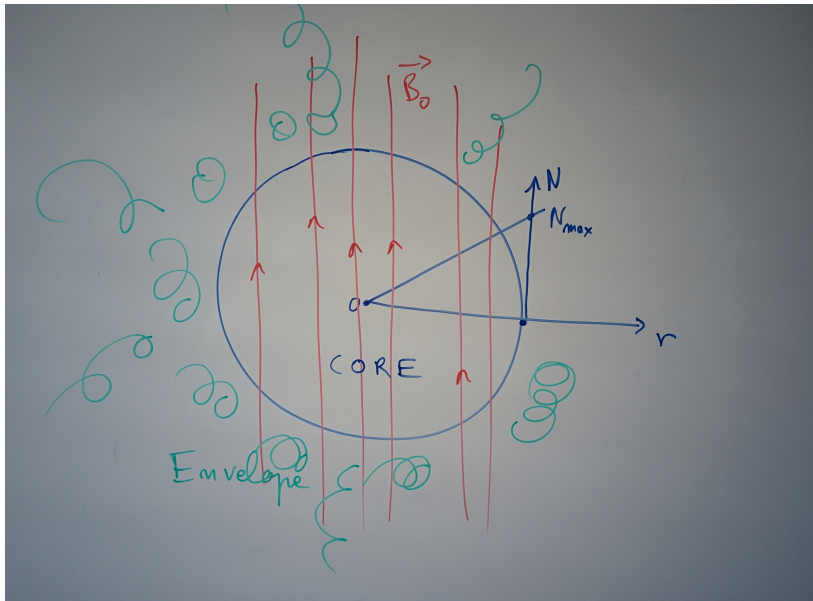 B₀
N
Nmax
O
r
CORE
Envelope